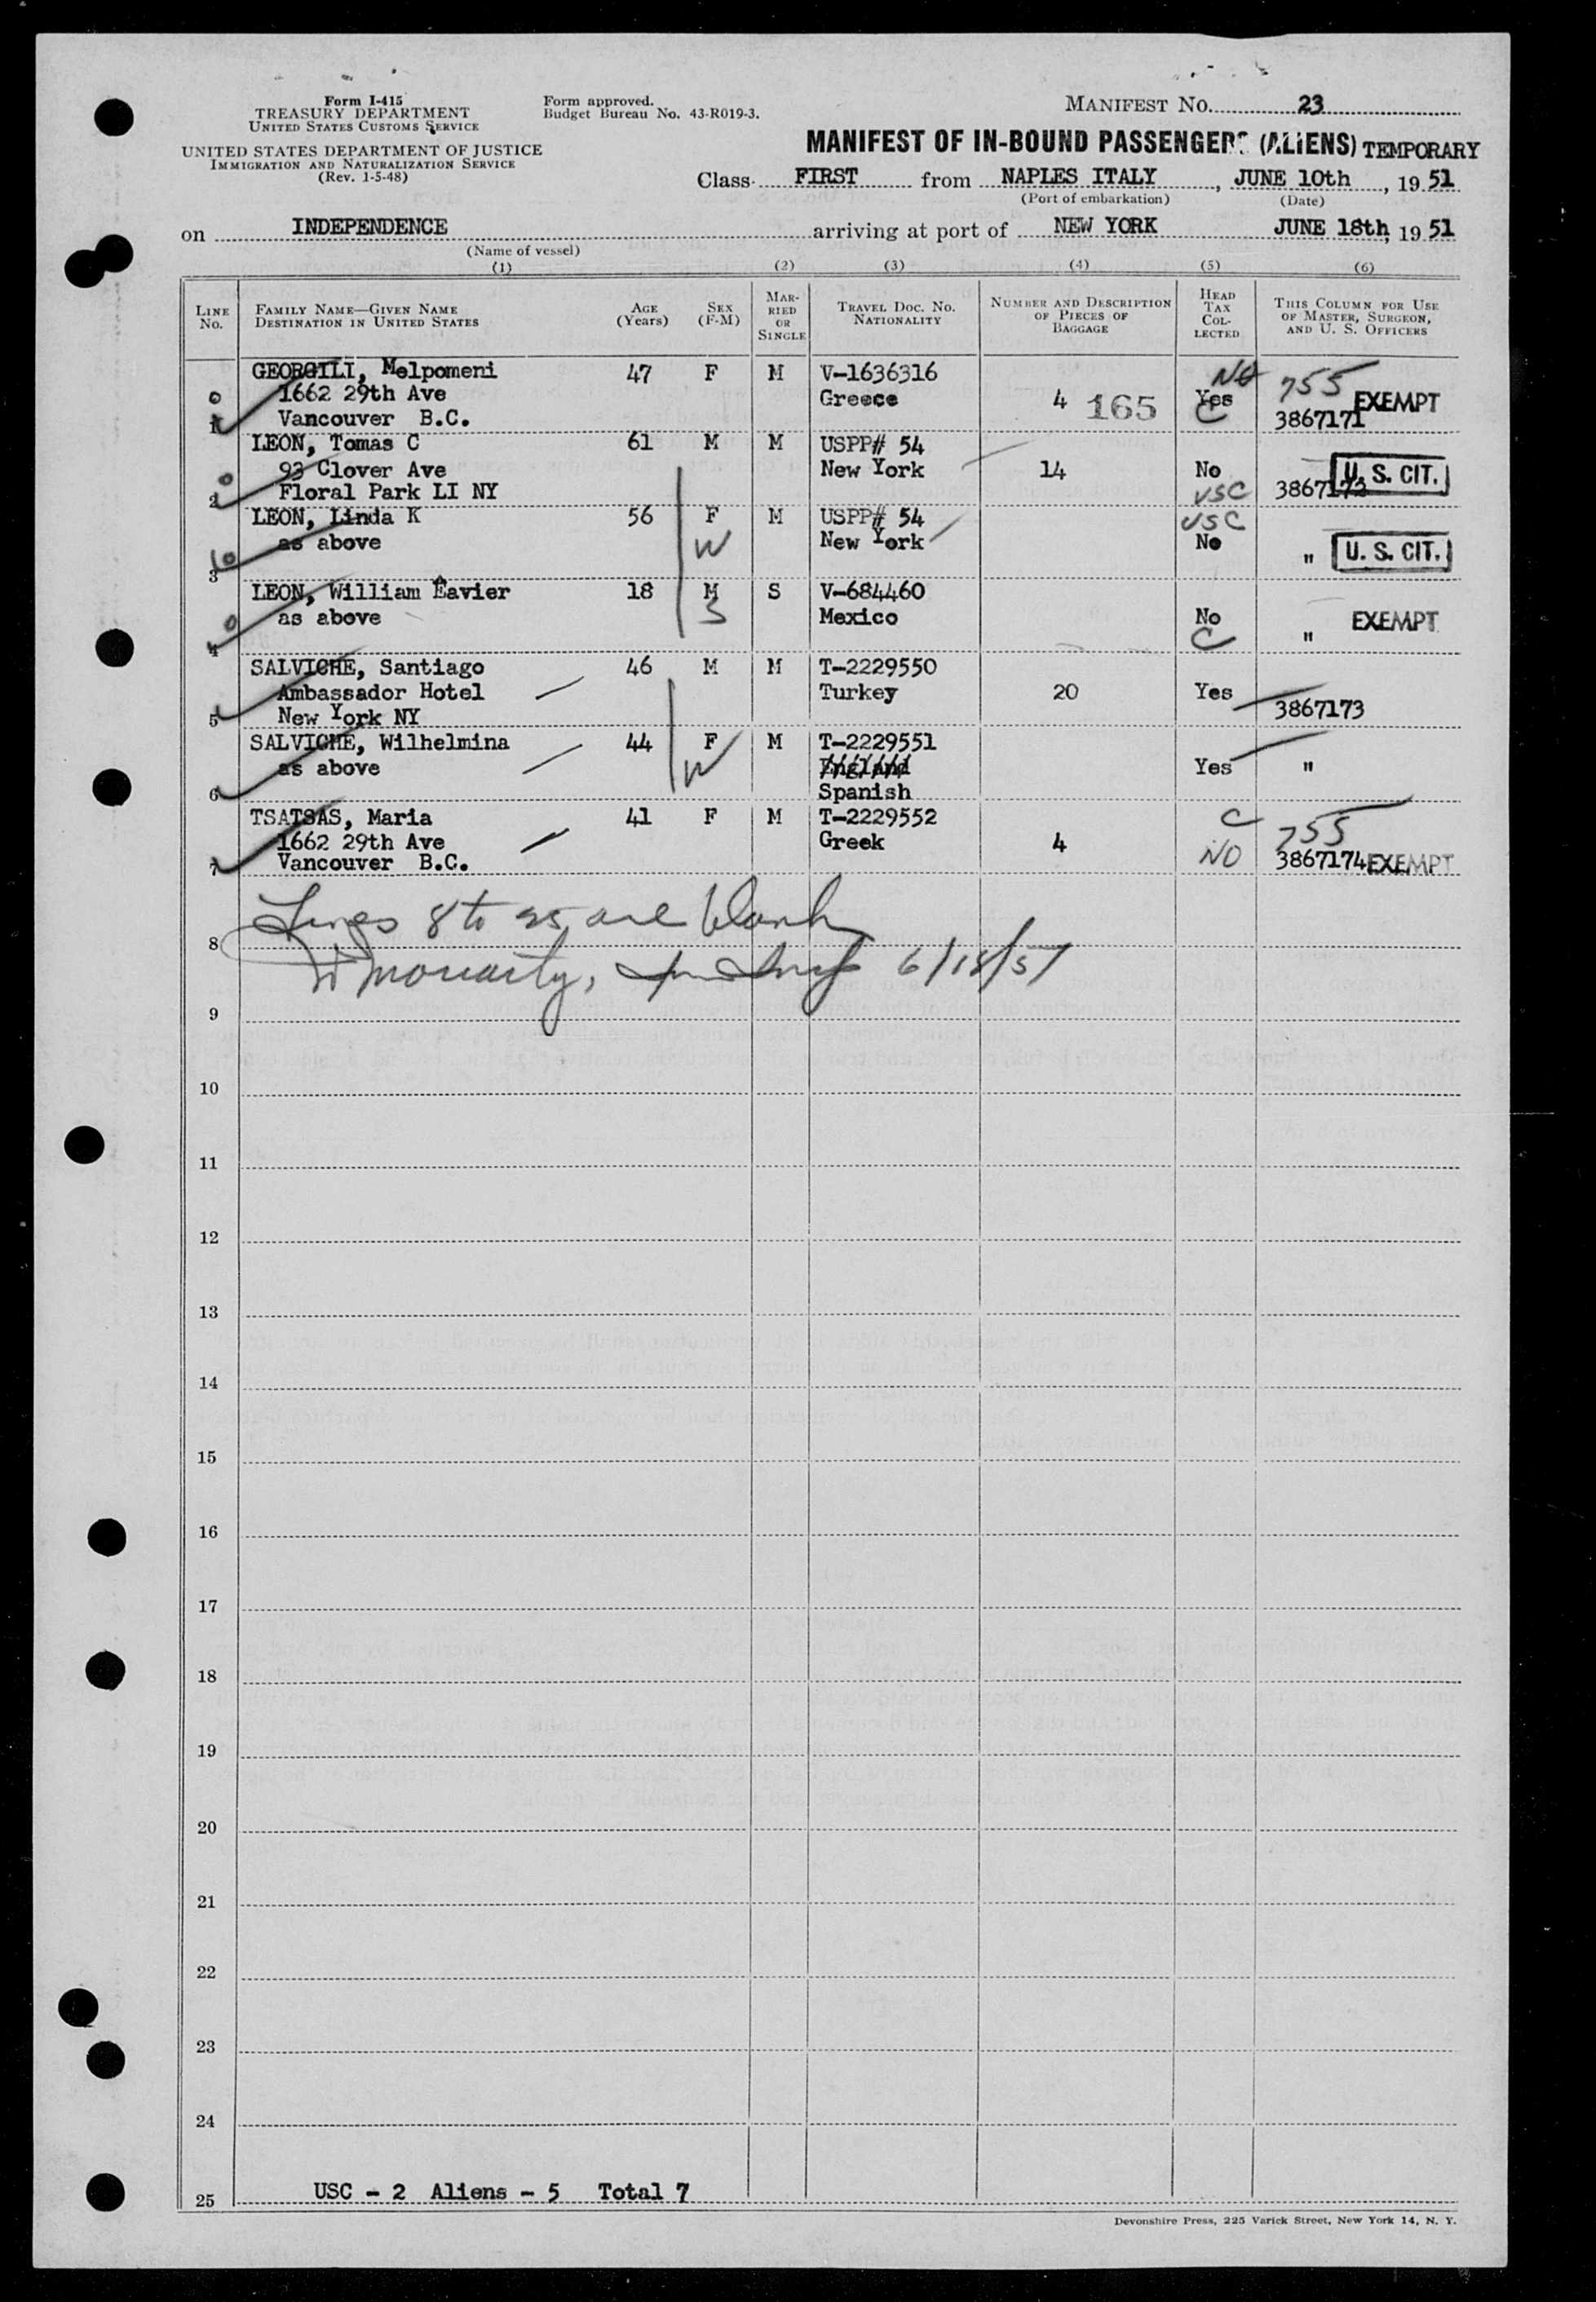 Form I-415
TREASURY DEPARTMENT
UNITED STATES CUSTOMS SERVICE
UNITED STATES DEPARTMENT OF JUSTICE
IMMIGRATION AND NATURALIZATION SERVICE
(Rev. 1-5-48)
Form approved.
Budget Bureau No. 43-R019-3.
MANIFEST No. 23
MANIFEST OF IN-BOUND PASSENGERS (ALIENS) TEMPORARY
Class FIRST from NAPLES ITALY, JUNE 10th, 19 51
(Port of embarkation) (Date)
on INDEPENDENCE arriving at port of NEW YORK JUNE 18th, 19 51
(Name of vessel)
(1) (2) (3) (4) (5) (6)
LINE No.
FAMILY NAME—GIVEN NAME
DESTINATION IN UNITED STATES
AGE (Years)
SEX (F-M)
MAR-RIED OR SINGLE
TRAVEL DOC. NO. NATIONALITY
NUMBER AND DESCRIPTION OF PIECES OF BAGGAGE
HEAD TAX COL-LECTED
THIS COLUMN FOR USE OF MASTER, SURGEON, AND U. S. OFFICERS
GEORGILI, Melpomeni 47 F M V-1636316 NO 755
1662 29th Ave Greece 4 165 Yes EXEMPT
1 Vancouver B.C. C 3867171
LEON, Tomas C 61 M M USPP# 54
93 Clover Ave New York 14 No U. S. CIT.
2 Floral Park LI NY USC 3867173
LEON, Linda K 56 F M USPP# 54 USC
as above W New York No " U. S. CIT.
3
LEON, William Eavier 18 M S V-684460
as above S Mexico No " EXEMPT
4 C
SALVICHE, Santiago 46 M M T-2229550
Ambassador Hotel Turkey 20 Yes
5 New York NY 3867173
SALVICHE, Wilhelmina 44 F M T-2229551
as above W England Yes "
6 Spanish
TSATSAS, Maria 41 F M T-2229552 C 755
1662 29th Ave Greek 4 NO
7 Vancouver B.C. 3867174 EXEMPT
Lines 8 to 25 are blank
8
Moriarty, 6/18/51
9
10
11
12
13
14
15
16
17
18
19
20
21
22
23
24
25 USC - 2 Aliens - 5 Total 7
Devonshire Press, 225 Varick Street, New York 14, N. Y.